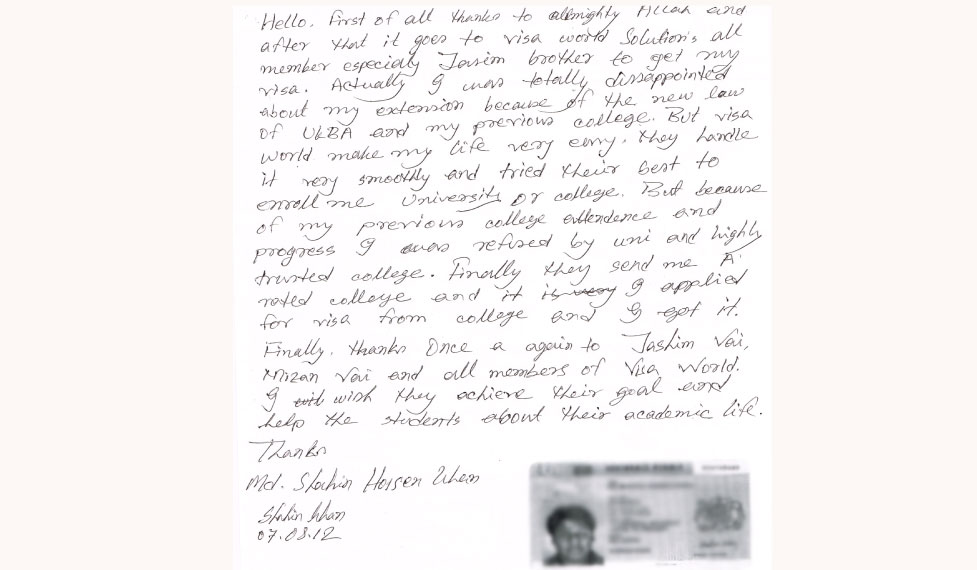 Hello. First of all thanks to allmighty Allah and
after that it goes to visa world Solution's all
member especialy Jasim brother to get my
visa. Actually I was totally dissappointed
about my extension because of the new law
of UKBA and my previous college. But visa
world make my life very easy. they handle
it very smoothly and tried their best to
enroll me University or college. But because
of my previous college attendence and
progress I was refused by uni and highly
trusted college. Finally they send me A
rated college and it is very I applied
for visa from college and I got it.
Finally. thanks Once a again to Jashim Vai,
Mizan Vai and all members of Visa World.
I wish they achieve their goal and
help the students about their academic life.
Thanks
Md. Shahin Hossen Khan
Shahin khan
07.08.12